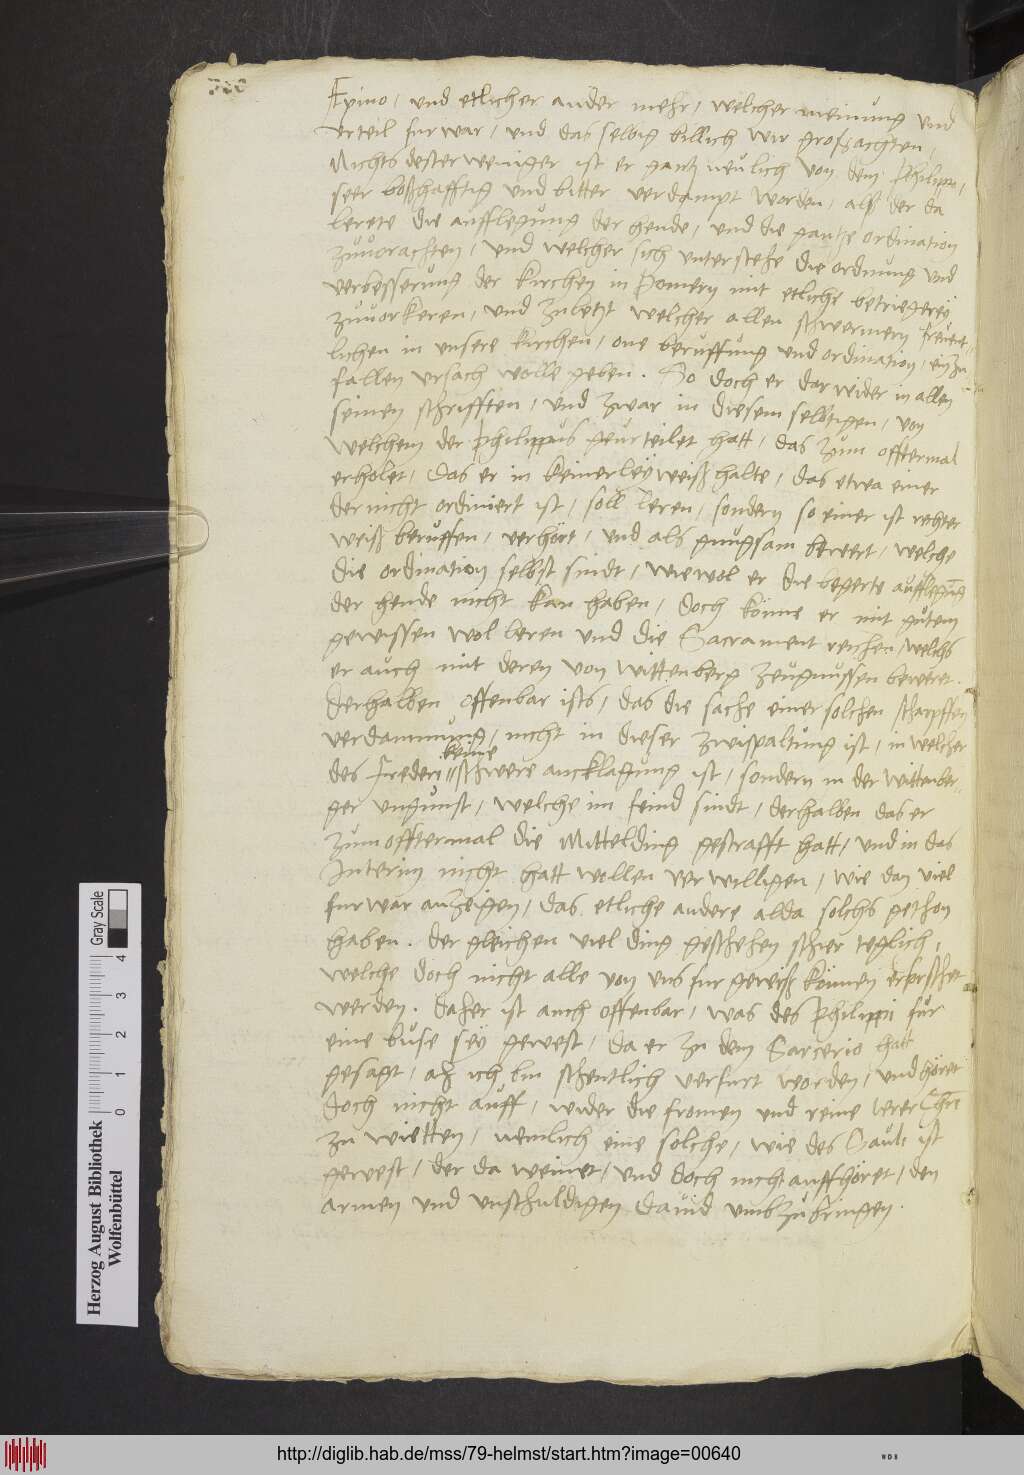 Epino, und etlicher ander mehr, welcher meinung und
urteil fur war, und das selbig billich wir groß achten,
Nichts dester weniger ist er gantz neulich von dem Philippo,
seer boßhafftig und bitter verdampt worden, alß der da
lerete die aufflegung der hende, und die gantze ordination
zuvorachten, und welcher sich unterstehe die ordnung und
verbesserung der kirchen in Pomern mit etliche betriegerey
zuvorkeren, und zuletzt welcher allen schwermern frevent-
lichen in unsere kirchen, one beruffung und ordination, einzu
fallen ursach wolle geben. So doch er darwider in allen
seinen schrifften, und zwar in diesem selbigen, von
welchem der Philippus geurteilet hatt, das zum offtermal
erholet, das er in keinerley weiß halte, das etwa einer
der nicht ordiniert ist, soll leren, sondern so einer ist rechter
weiß beruffen, verhört, und als gnugsam bewert, welche
die ordination selbst sindt, wiewol er die begerte aufflegung
der hende nicht kan haben, doch könne er mit gutem
gewissen wol leren und die Sacrament reichen, welchs
er auch mit deren von Wittenberg zeugnussen beweret.
Derhalben offenbar ists, das die sache einer solchen scharpffen
verdammung, nicht in dieser zwispaltung ist, in welcher
keine
des Frederi schwere ancklagung ist, sondern in der Wittenber-
ger ungunst, welche im feind sindt, derhalben das er
zum offtermal die Mittelding gestrafft hatt, und in das
Interim nicht hatt wollen verwilligen, wie dan viel
furwar anzeigen, das etliche andere alda solchs gethon
haben. Der gleichen viel ding geschehen schier teglich,
welche doch nicht alle von uns fur gewiß können
werden. Daher ist auch offenbar, was des Philippi für
eine buse sey gewest, da er zu dem Sarcerio hatt
gesagt, ah ich bin schentlich verfurt worden, und höret
doch nicht auff, wider die fromen und reine lerer Chri
zu wietten, nemlich eine solche, wie des Sauls ist
gewest, der da weinet, und doch nicht auffhöret, den
armen und unschuldigen David umbzubringen.
Gray Scale
0 1 2 3 4
Herzog August Bibliothek
Wolfenbüttel
http://diglib.hab.de/mss/79-helmst/start.htm?image=00640